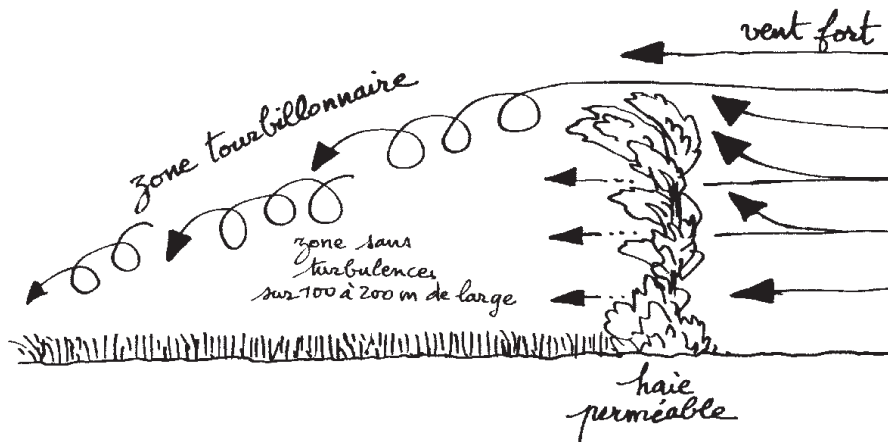 vent fort
zone tourbillonnaire
zone sans
turbulences
sur 100 à 200 m de large
haie
perméable